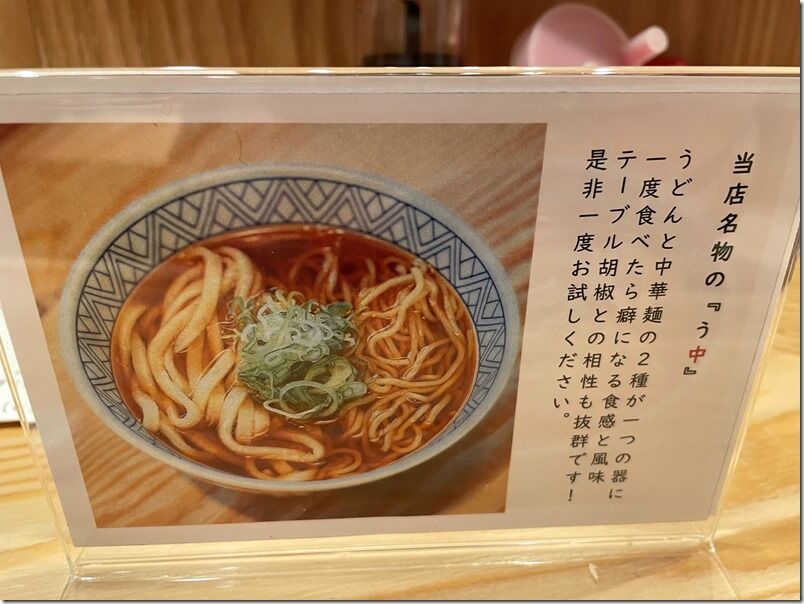 当店名物の『う中』
うどんと中華麺の２種が一つの器に
一度食べたら癖になる食感と風味
テーブル胡椒との相性も抜群です！
是非一度お試しください。